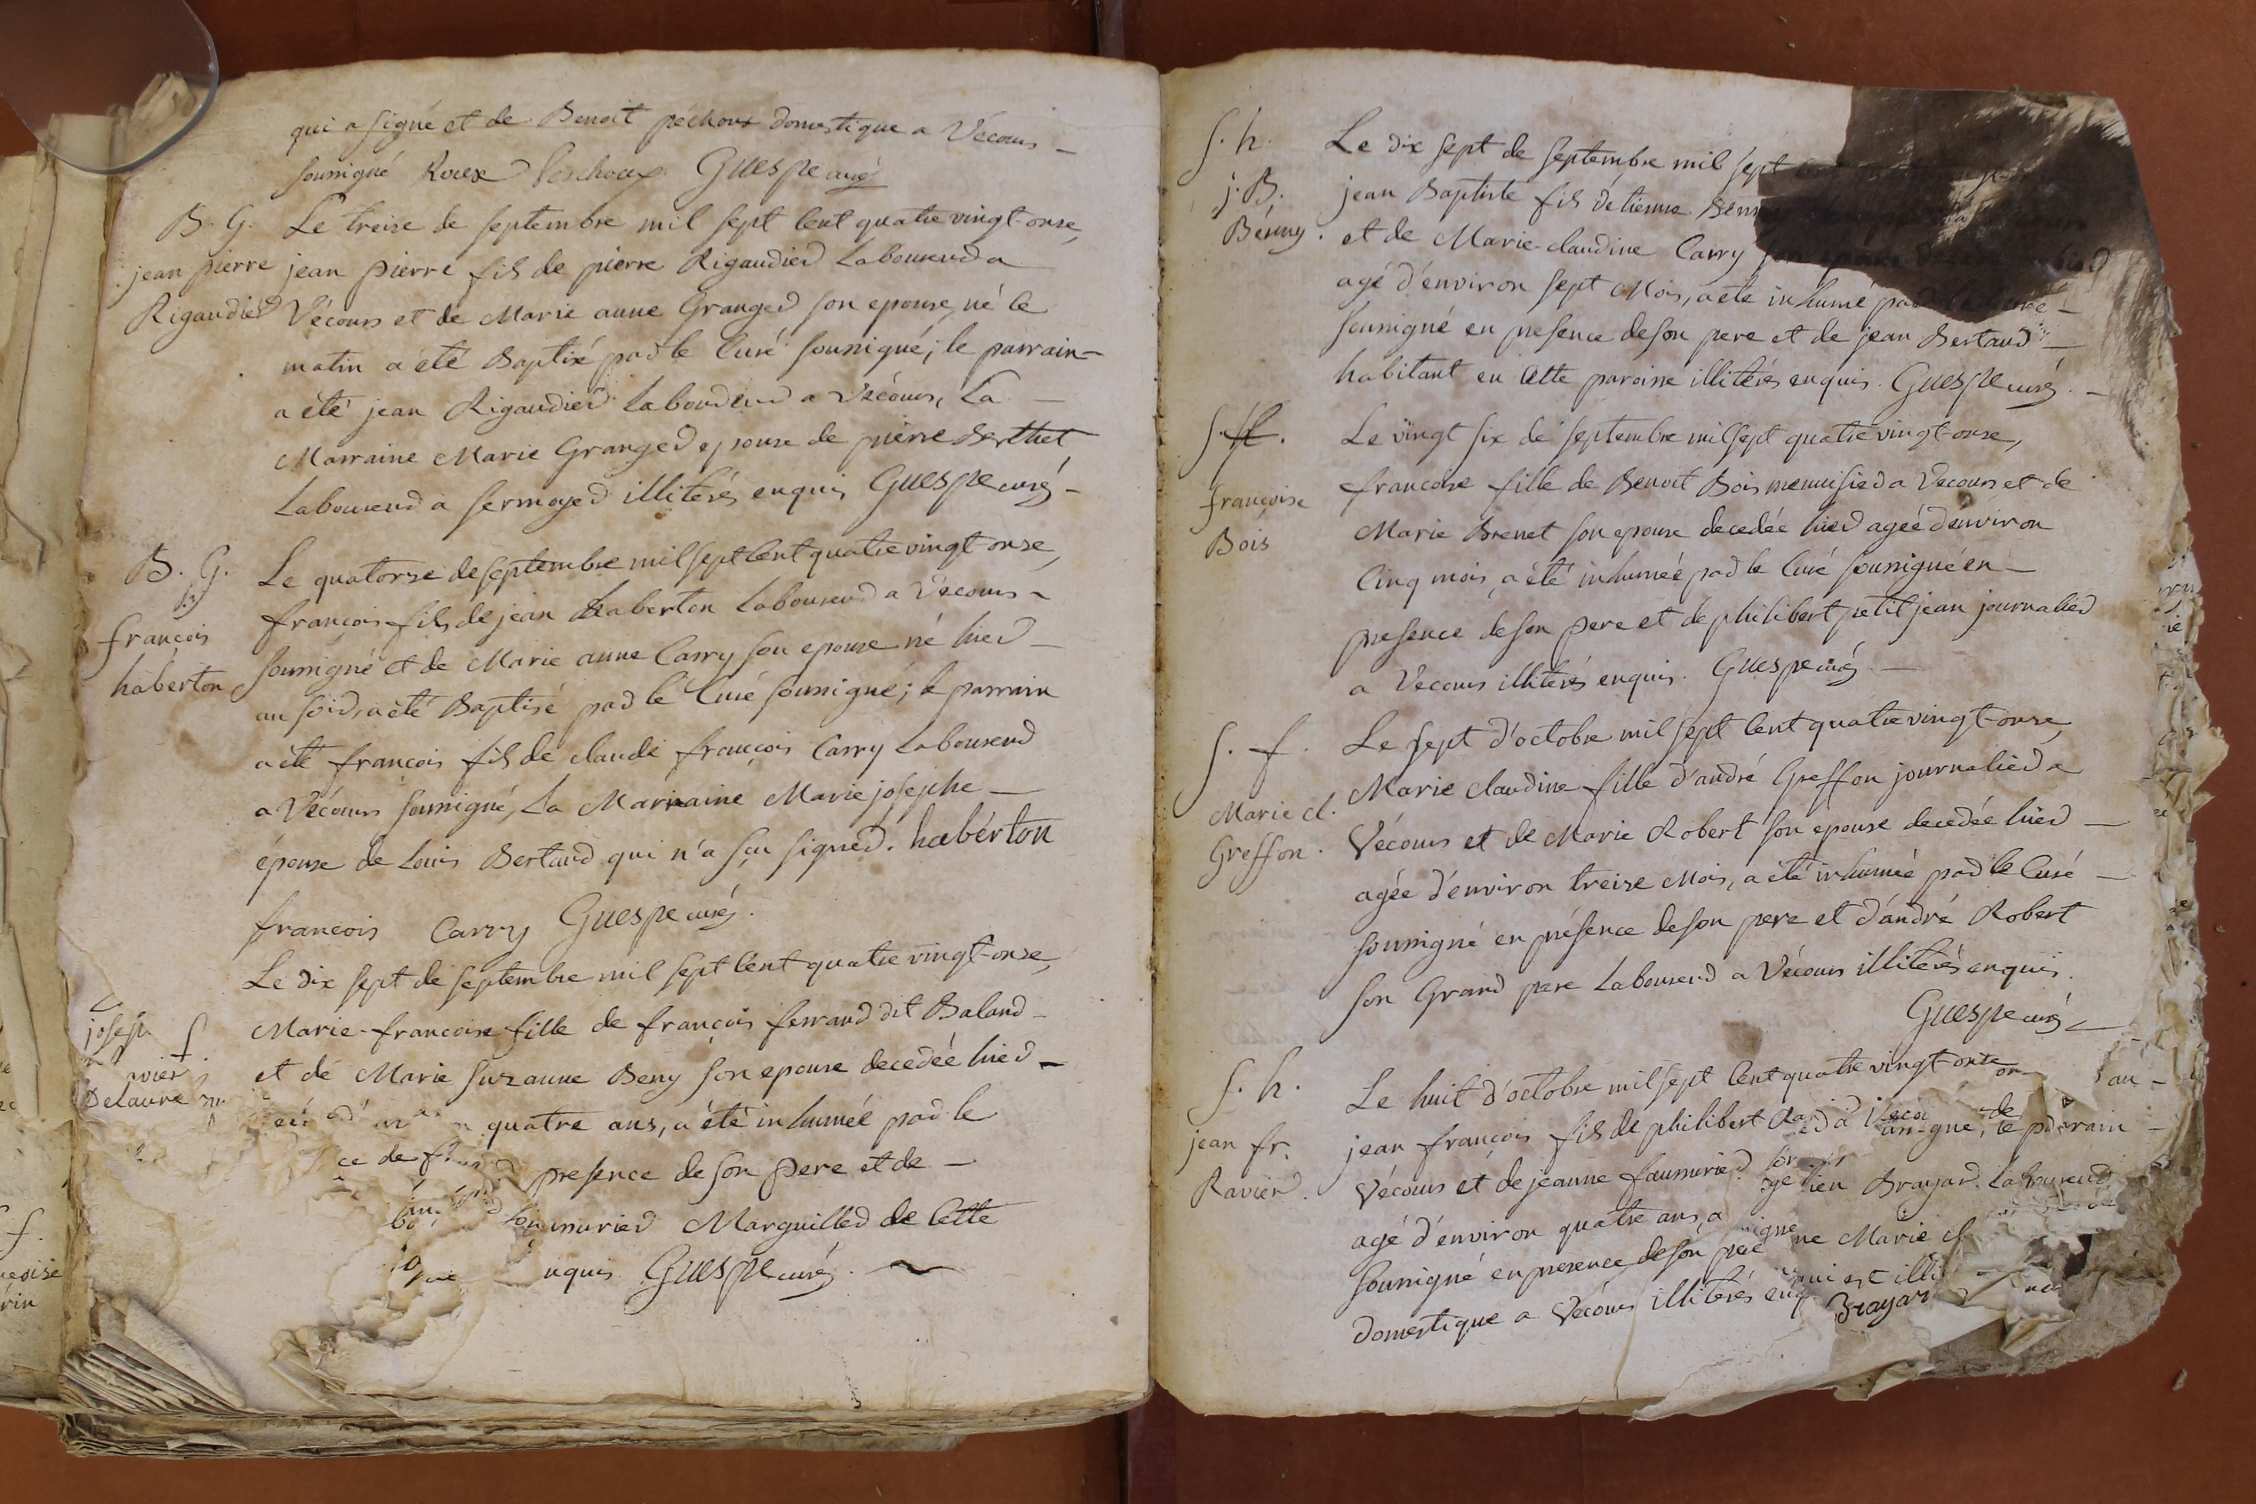 qui a signé et de Benoit péchoux domestique a Vécours
soussigné Roux Poschoux Guespe curé
B. G.
jean pierre
Rigaudier
Le treize de septembre mil sept cent quatre vingt-onze,
jean pierre fils de pierre Rigaudier Laboureur a
Vécours et de Marie anne Granger son epouse, né le
matin a été Baptizé par le Curé soussigné; le parrain
a été jean Rigaudier Laboureur a Vécours, La
Marraine Marie Granger epouse de pierre Berthet
Laboureur a sermoyer illiterés enquis Guespe curé
B. G.
françois
haberton
Le quatorze de septembre mil sept cent quatre vingt-onze,
françois fils de jean haberton Laboureur a Vécours
soussigné et de Marie anne Carry son epouse né hier
au soir, a été Baptisé par le Curé soussigné; le parrain
a été françois fils de claude françois Carry Laboureur
a Vécours soussigné, La Marraine Marie josephe
épouse de Louis Bertaud qui n'a sçu signer. habérton
francois Carry Guespe curé.
Le dix sept de septembre mil sept cent quatre vingt-onze,
Marie-francoise fille de françois ferrand dit Baland
et de Marie suzanne Beny son epouse decedée hier
quatre ans, a été inhumée par le
presence de son pere et de
Marguiller de cette
nquis Guespe curé.
joseph
vier
Delaure
S. h.
j. B.
Bénny.
Le dix sept de septembre mil sept
jean Baptiste fils d'etienne
et de Marie-claudine Carry
agé d'environ sept Mois, a été inhumé par
soussigné en presence de son pere et de jean Bertaud
habitant en cette paroisse illiterés enquis. Guespe curé.
S. f.
françoise
Bois
Le vingt six de septembre mil sept quatre vingt-onze,
francoise fille de Benoit Bois menuisier a Vecours et de
Marie Brenet son epouse decedée hier ageé d'environ
Cinq mois, a été inhumée par le Curé soussigné en
presence de son pere et de philibert petitjean journalier
a Vecours illiterés enquis. Guespe curé
S. f.
Marie cl.
Greffon.
Le sept d'octobre mil sept cent quatre vingt-onze,
Marie claudine fille d'andré Greffon journalier a
Vécours et de Marie Robert son epouse decedée hier
agée d'environ treize Mois, a été inhumée par le Curé
soussigné en présence de son pere et d'andré Robert
son Grand pere Laboureur a Vécours illiterés enquis.
Guespe curé
S. h.
jean fr.
Ravier.
Le huit d'octobre mil sept cent quatre vingt-onze
jean françois fils de philibert
Vécours et de jeanne
agé d'environ quatre ans, a
soussigné en presence de son pere
domestique a Vécours illiterés enq
Brayar Laboureur
ne Marie cl
qui est illi
Brayar